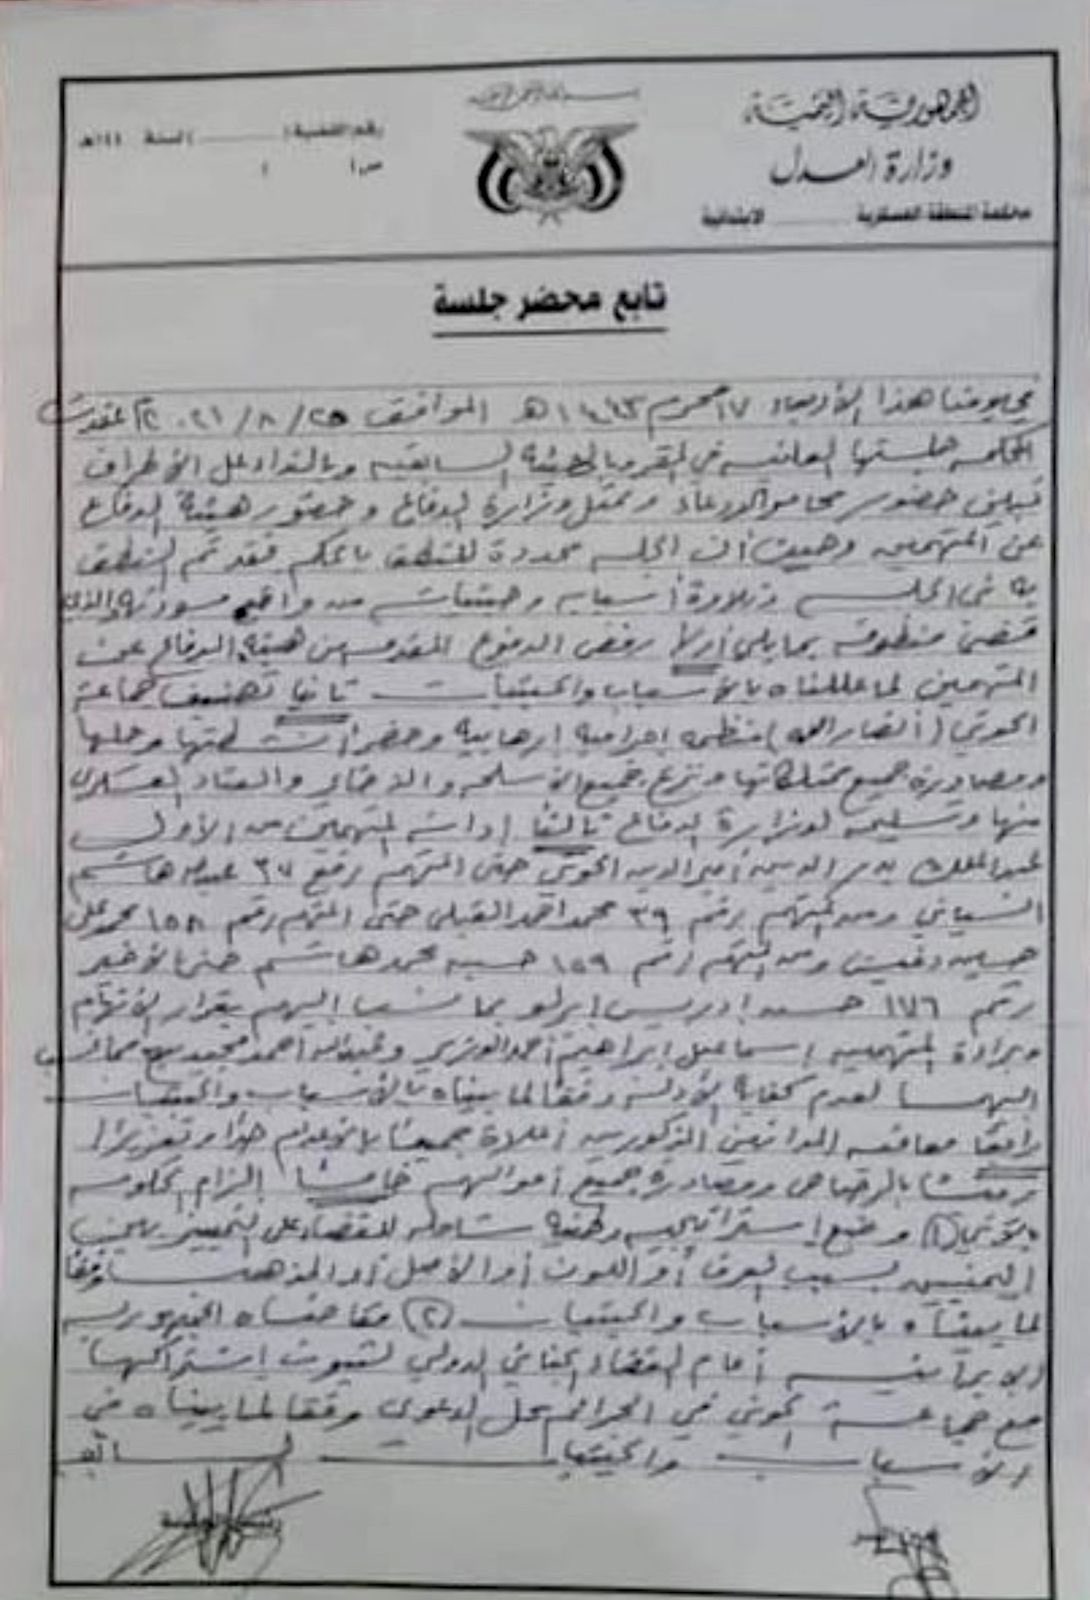 بسم الله الرحمن الرحيم
الجمهورية اليمنية
وزارة العدل
محكمة المنطقة العسكرية ............ الابتدائية
رقم القضية (............) لسنة ١٤٤ هـ
تابع محضر جلسة
في يومنا هذا الأربعاء ١٧ محرم ١٤٤٣هـ الموافق ٢٥/٨/٢٠٢١م عقدت
المحكمة جلستها العلنية في المقر وبالهيئة السابقة وبالنداء على الأطراف
تبين حضور محامو الادعاء وممثل وزارة الدفاع وحضور هيئة الدفاع
عن المتهمين وحيث أن الجلسة محددة للنطق بالحكم فقد تم النطق
به في الجلسة وتلاوة أسبابه وحيثياته من واقع مسودته والذي
قضى منطوقه بما يلي أولاً رفض الدفوع المقدمة من هيئة الدفاع عن
المتهمين لما عللناه بالأسباب والحيثيات ثانيا تصنيف جماعة
الحوثي (أنصار الله) منظمة اجرامية ارهابية وحضر أنشطتها وحلها
ومصادرة جميع ممتلكاتها ونزع جميع الأسلحة والذخائر والعتاد العسكري
منها وتسليمه لوزارة الدفاع ثالثا إدانة المتهمين من الأول
عبدالملك بدر الدين أمير الدين الحوثي حتى المتهم رقم ٣٧ هاشم
ومن المتهم رقم ٣٩ محمد احمد القبلي حتى المتهم رقم ١٥٨ محمد علي
حسين ومن المتهم رقم ١٥٩ محمد هاشم حتى الأخير
رقم ١٧٦ حسن إدريس ايرلو بما نسب إليهم بقرار الاتهام
وبراءة المتهمين إسماعيل إبراهيم أحمد الوزير وعبدالله أحمد مما نسب
اليهما لعدم كفاية الأدلة وفقا لما بيناه بالأسباب والحيثيات
رابعا معاقبة المدانين المذكورين أعلاه جميعا بالإعدام حدا وتعزيرا
رميا بالرصاص ومصادرة جميع أموالهم خامسا إلزام الحكومة
(١) وضع استراتيجية وطنية شاملة للقضاء على التمييز بين
اليمنيين بسبب العرق أو اللون أو الأصل أو المذهب وفقا
لما بيناه بالأسباب والحيثيات (٢) مقاضاة الجمهورية
الايرانية أمام القضاء الجنائي الدولي لثبوت اشتراكها
مع جماعة الحوثي في الجرائم محل الدعوى وفقا لما بيناه في
الأسباب والحيثيات